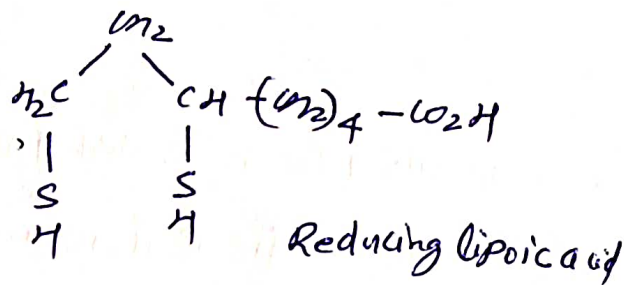 CH2
H2C CH -(CH2)4 - CO2H
S S
H H
Reducing lipoic acid